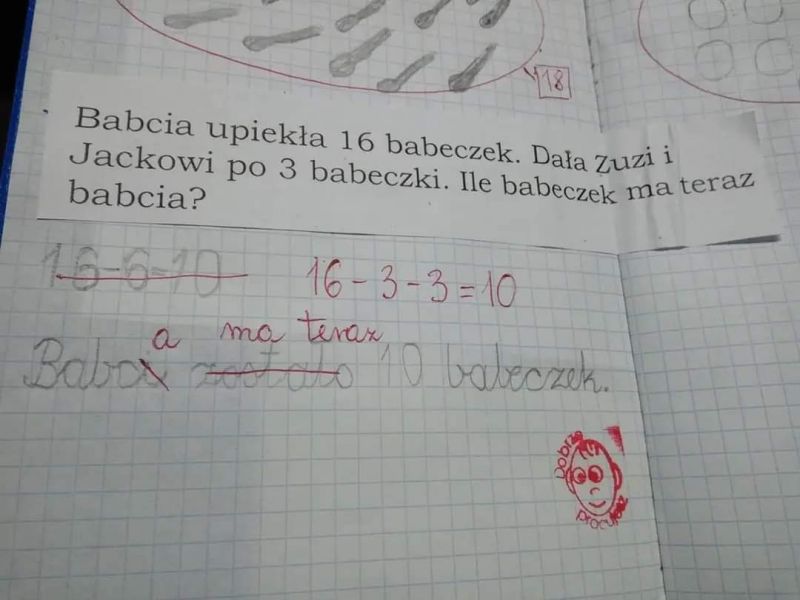 18
Babcia upiekła 16 babeczek. Dała Zuzi i
Jackowi po 3 babeczki. Ile babeczek ma teraz
babcia?
16-6=10
16-3-3=10
a ma teraz
Babci zostało 10 babeczek.
Dobrze
pracujesz